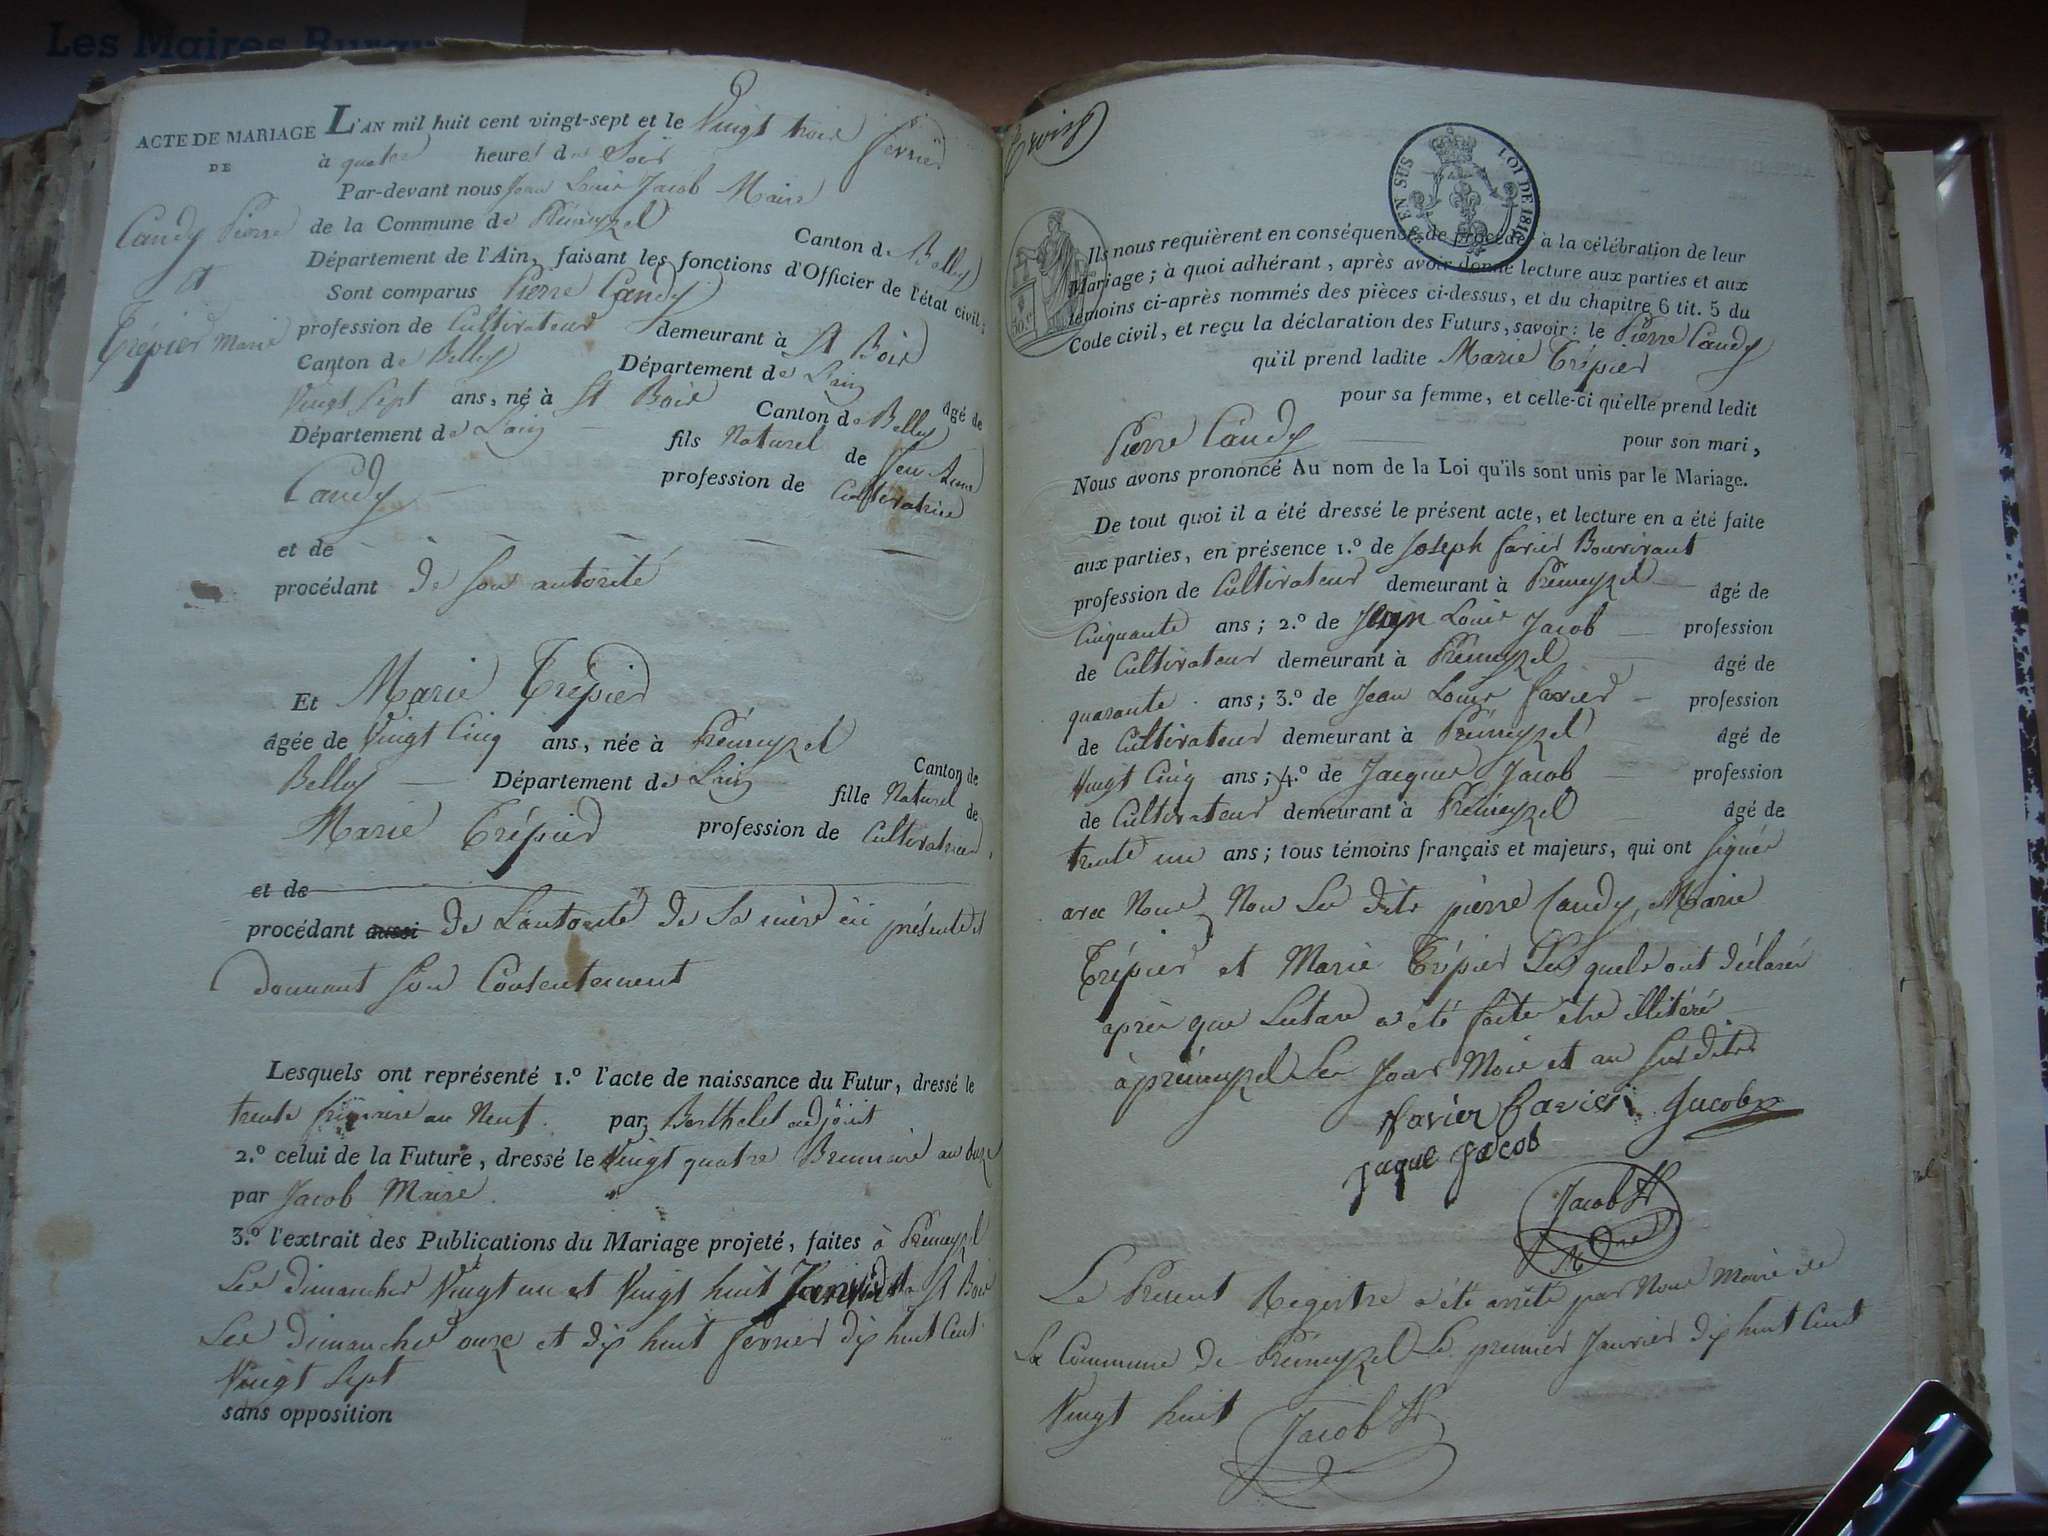 Les Maires Rurau
ACTE DE MARIAGE
DE
Candy Pierre
et
Trépier Marie
L'AN mil huit cent vingt-sept et le Vingt trois fevrier
à quatre heures du Soir
Par-devant nous Jean Louis Jacob Maire
de la Commune de Prémeyzel Canton de Belley
Département de l'Ain, faisant les fonctions d'Officier de l'état civil;
Sont comparus Pierre Candy
profession de Cultivateur demeurant à St Bois
Canton de Belley Département de Lain âgé de
Vingt Sept ans, né à St Bois Canton de Belley
Département de Lain fils Naturel de feu Anne
Candy profession de Cultivatrice
et de
procédant de son autorité
Et Marie Trépier
âgée de Vingt Cinq ans, née à Prémeyzel Canton de
Belley Département de Lain fille Naturel de
Marie Trépier profession de Cultivatrice
et de
procédant aussi de Lautorité de Sa mère ici présente et
donnant son Contentement
Lesquels ont représenté 1.º l'acte de naissance du Futur, dressé le
trente frimaire an Neuf. par Berthelet adjoint
2.º celui de la Future, dressé le Vingt quatre Brumaire an onze
par Jacob Maire.
3.º l'extrait des Publications du Mariage projeté, faites à Prémeyzel
Les dimanches Vingt un et Vingt huit Janvier et a St Bois
Les dimanches onze et dix huit fevrier dix huit Cent
Vingt Sept
sans opposition
Trois
EN SUS LOI DE 1816
50.c
Ils nous requièrent en conséquence de procéder à la célébration de leur
Mariage; à quoi adhérant, après avoir donné lecture aux parties et aux
témoins ci-après nommés des pièces ci-dessus, et du chapitre 6 tit. 5 du
Code civil, et reçu la déclaration des Futurs, savoir: le Pierre Candy
qu'il prend ladite Marie Trépier
pour sa femme, et celle-ci qu'elle prend ledit
Pierre Candy pour son mari,
Nous avons prononcé Au nom de la Loi qu'ils sont unis par le Mariage.
De tout quoi il a été dressé le présent acte, et lecture en a été faite
aux parties, en présence 1.º de Joseph favier Bouvivant
profession de Cultivateur demeurant à Prémeyzel âgé de
Cinquante ans; 2.º de Jean Louis Jacob profession
de Cultivateur demeurant à Prémeyzel âgé de
quarante ans; 3.º de Jean Louis favier profession
de Cultivateur demeurant à Prémeyzel âgé de
Vingt Cinq ans; 4.º de Jacques Jacob profession
de Cultivateur demeurant à Prémeyzel âgé de
trente un ans; tous témoins français et majeurs, qui ont signés
avec Nous, Non Les dits pierre Candy, Marie
Trépier et Marie Trépier Lesquels ont déclarés
après que Lecture a été faite être illitéré
à prémeyzel Les Jour Mois et an Susdits
favier favier Jacob
Jaque Jacob
Jacob
Le Present Registre a été arrêté par Nous Maire de
La Commune de Prémeyzel Le premier Janvier dix huit Cent
Vingt huit Jacob